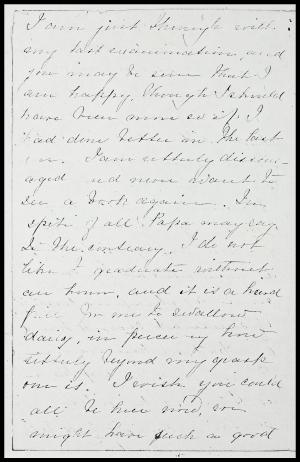 I am just through with
my last examination, and
you may be sure that I
am happy, though I should
have been more so if I
had done better on the last
one. I am utterly discour-
aged and never want to
see a book again. In
spite of all Papa may say
to the contrary, I do not
like to graduate without
an honor, and it is a hard
pill for me to swallow
daily, in perceiving how
utterly beyond my grasp
one is. I wish you could
all be here now, you
might have such a good